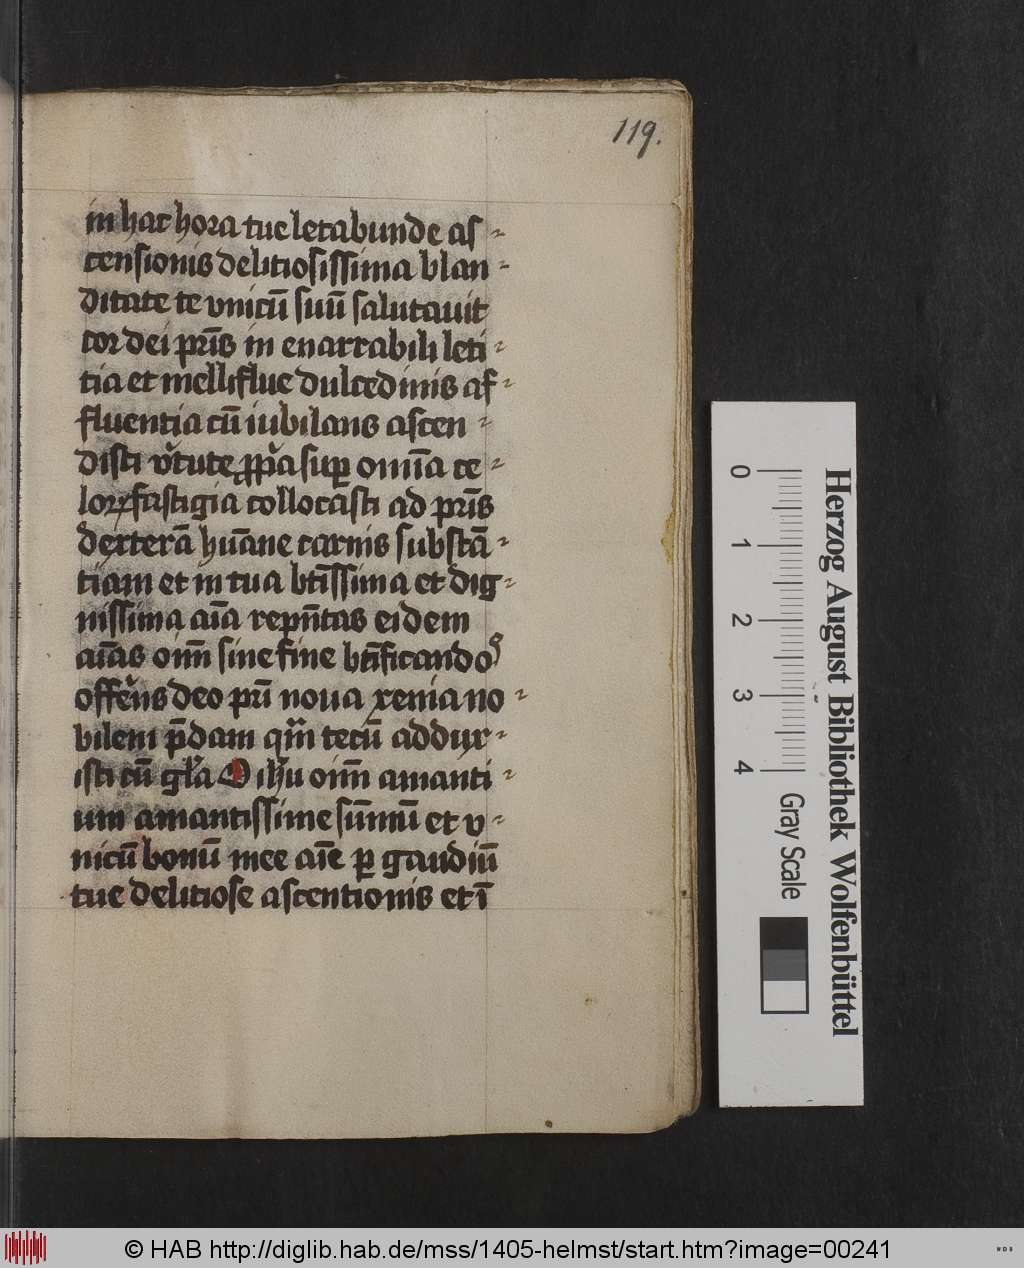 119.
in hac hora tue letabunde as-
censionis delitiosissima blan-
ditate te vnicū suū salutauit
cor dei pr̄is in enarrabili leti-
tia et melliflue dulcedinis af-
fluentia cū iubilans ascen-
disti v̓tute ꝓpͥa suꝑ omīa ce-
loꝝ fastigia collocasti ad pr̄is
dexterā hūane carnis substā-
tiam et in tua bt̄issima et dig-
nissima aīa rep̄n̄tas eidem
aīas oīm̄ sine fine bt̄ificandos
offe᷑ns deo pr̄i noua xenia no-
bilem p̄dam qm̄ tecū addux-
isti cū gl̓a O ih̓u oīm̄ amanti-
um amantissime sūmū et v-
nicū bonū mee aīe ꝑ gaudiū
tue delitiose ascentionis et ī
0 1 2 3 4
Gray Scale
Herzog August Bibliothek Wolfenbüttel
© HAB http://diglib.hab.de/mss/1405-helmst/start.htm?image=00241